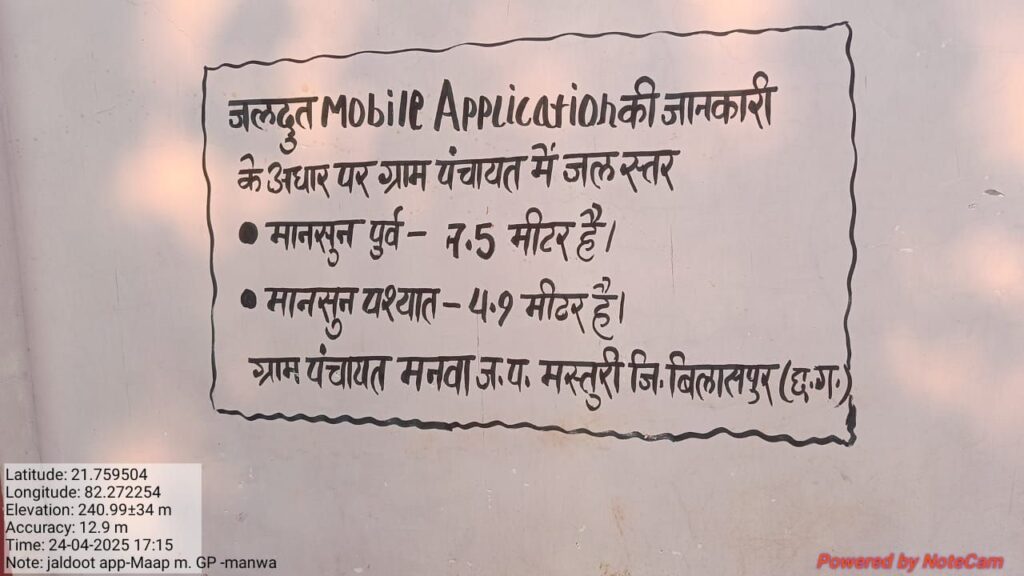 जलदुत Mobile Application की जानकारी
के अधार पर ग्राम पंचायत में जल स्तर
• मानसुन पुर्व - 7.5 मीटर है।
• मानसुन पश्यात - 4.9 मीटर है।
ग्राम पंचायत मनवा ज.प. मस्तुरी जि. बिलासपुर (छ.ग.)
Latitude: 21.759504
Longitude: 82.272254
Elevation: 240.99±34 m
Accuracy: 12.9 m
Time: 24-04-2025 17:15
Note: jaldoot app-Maap m. GP -manwa
Powered by NoteCam